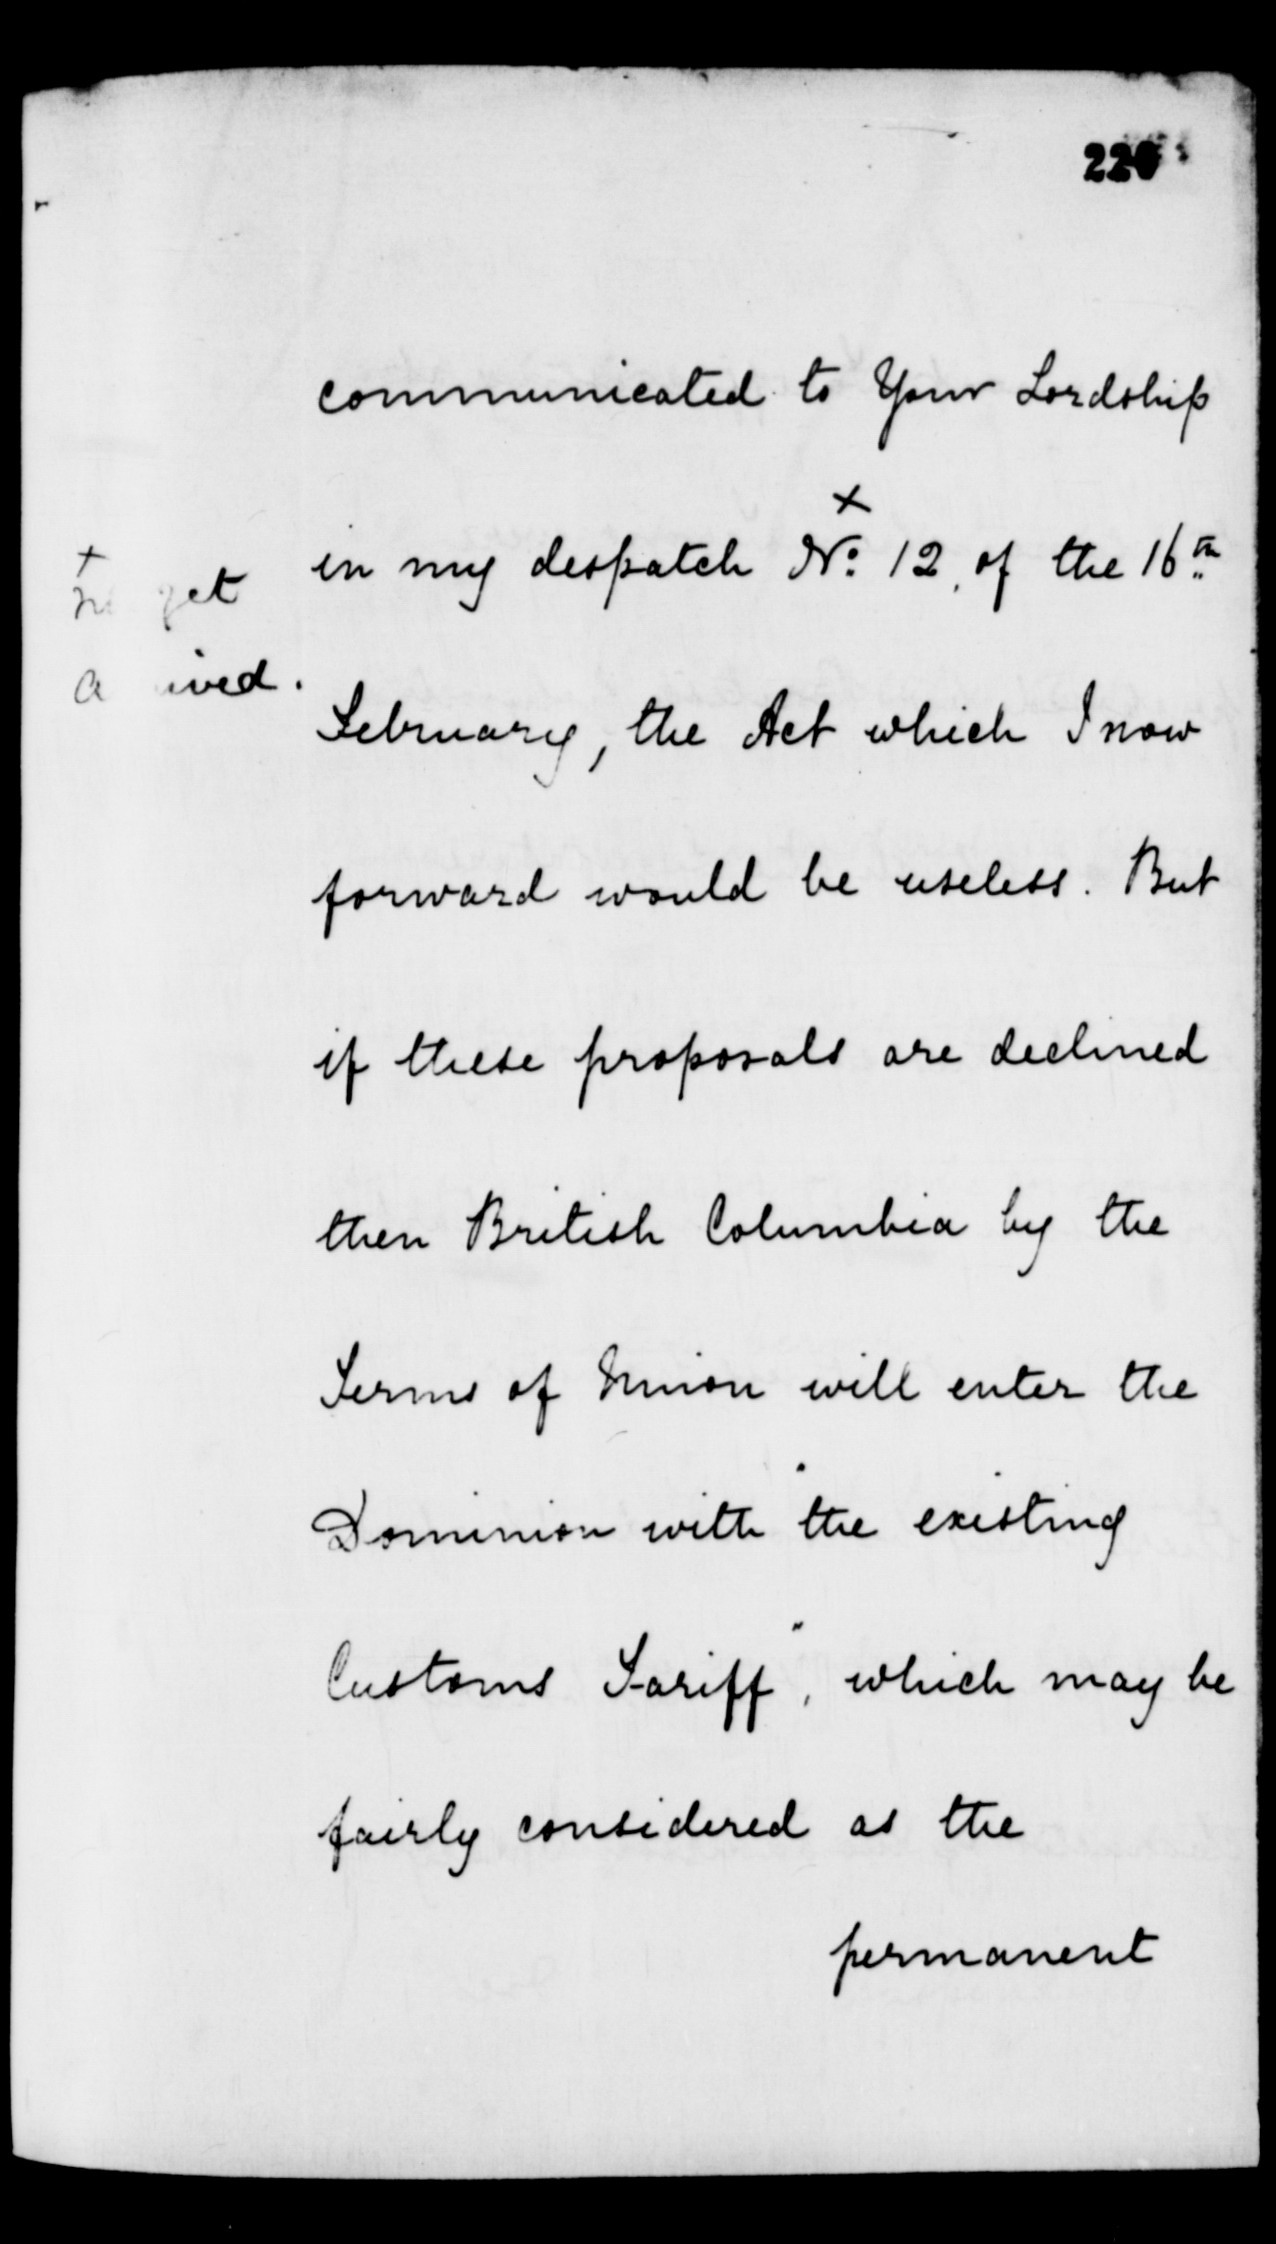 communicated to Your Lordship
x
in my despatch No. 12, of the 16th
+
yet
February, the Act which I now
forward would be useless. But
if these proposals are declined
then British Columbia by the
Terms of Union will enter the
Dominion with "the existing
Customs Tariff", which may be
fairly considered as the
permanent